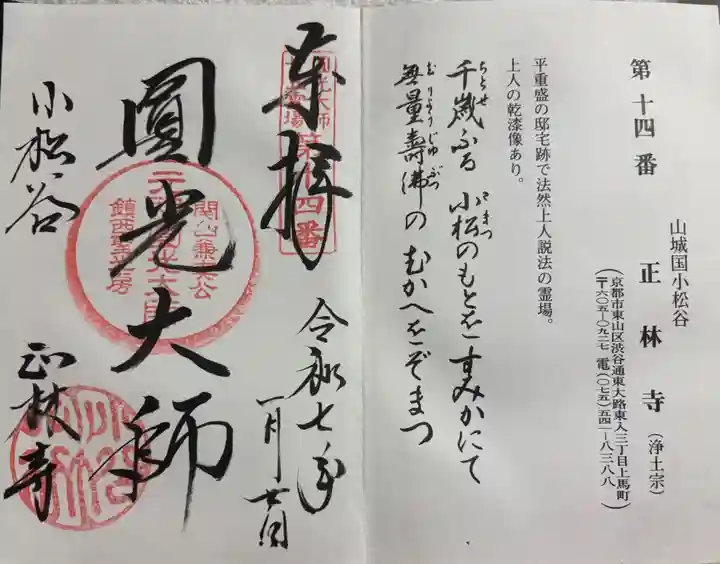 第十四番
山城国小松谷
正林寺（浄土宗）
（京都市東山区渋谷通東大路東入三丁目上馬町
（〒六〇五－〇九二七 電（〇七五）五四一－八三八八
平重盛の邸宅跡で法然上人説法の霊場。
上人の乾漆像あり。
千歳ふる 小松のもとを すみかにて
ちとせ
こまつ
無量壽佛の むかへをぞまつ
むりようじゆぶつ
奉拝
第十四番
令和七年
一月
圓光大師
関白兼実公
鎮西聖光房
小松谷
正林寺